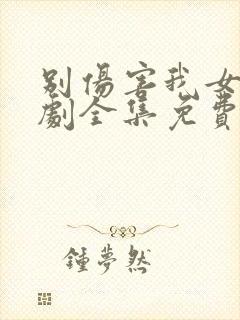 別傷害我女
劇全集免費
鍾夢然